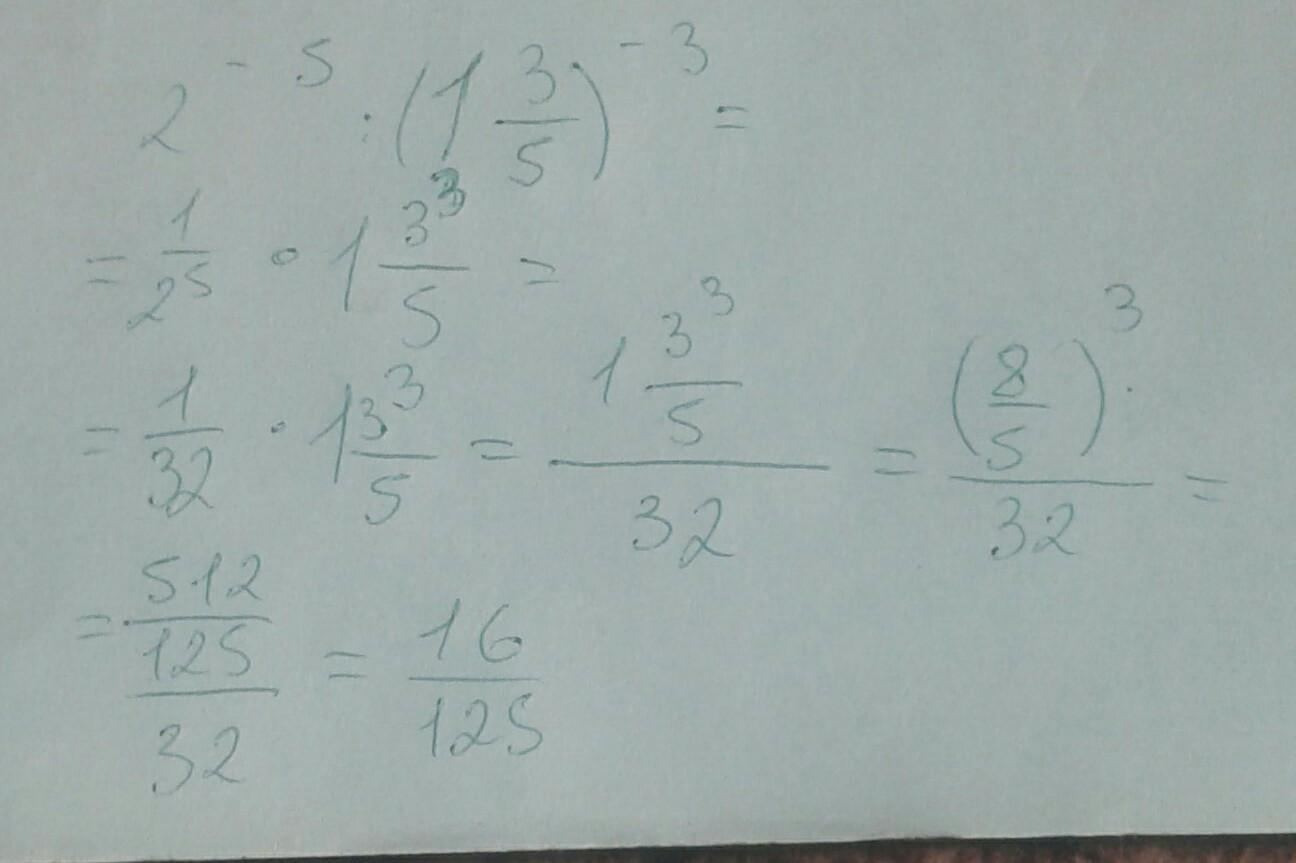 2^{-5} : (1 \frac{3}{5})^{-3} =
= \frac{1}{2^5} \cdot 1 \frac{3^3}{5} =
= \frac{1}{32} \cdot 1 \frac{3^3}{5} = \frac{1 \frac{3^3}{5}}{32} = \frac{(\frac{8}{5})^3}{32} =
= \frac{\frac{512}{125}}{32} = \frac{16}{125}